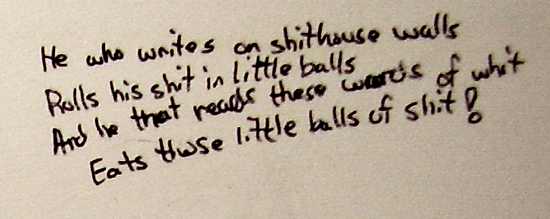 He who writes on shithouse walls
Rolls his shit in little balls
And he that reads these words of whit
Eats those little balls of shit!